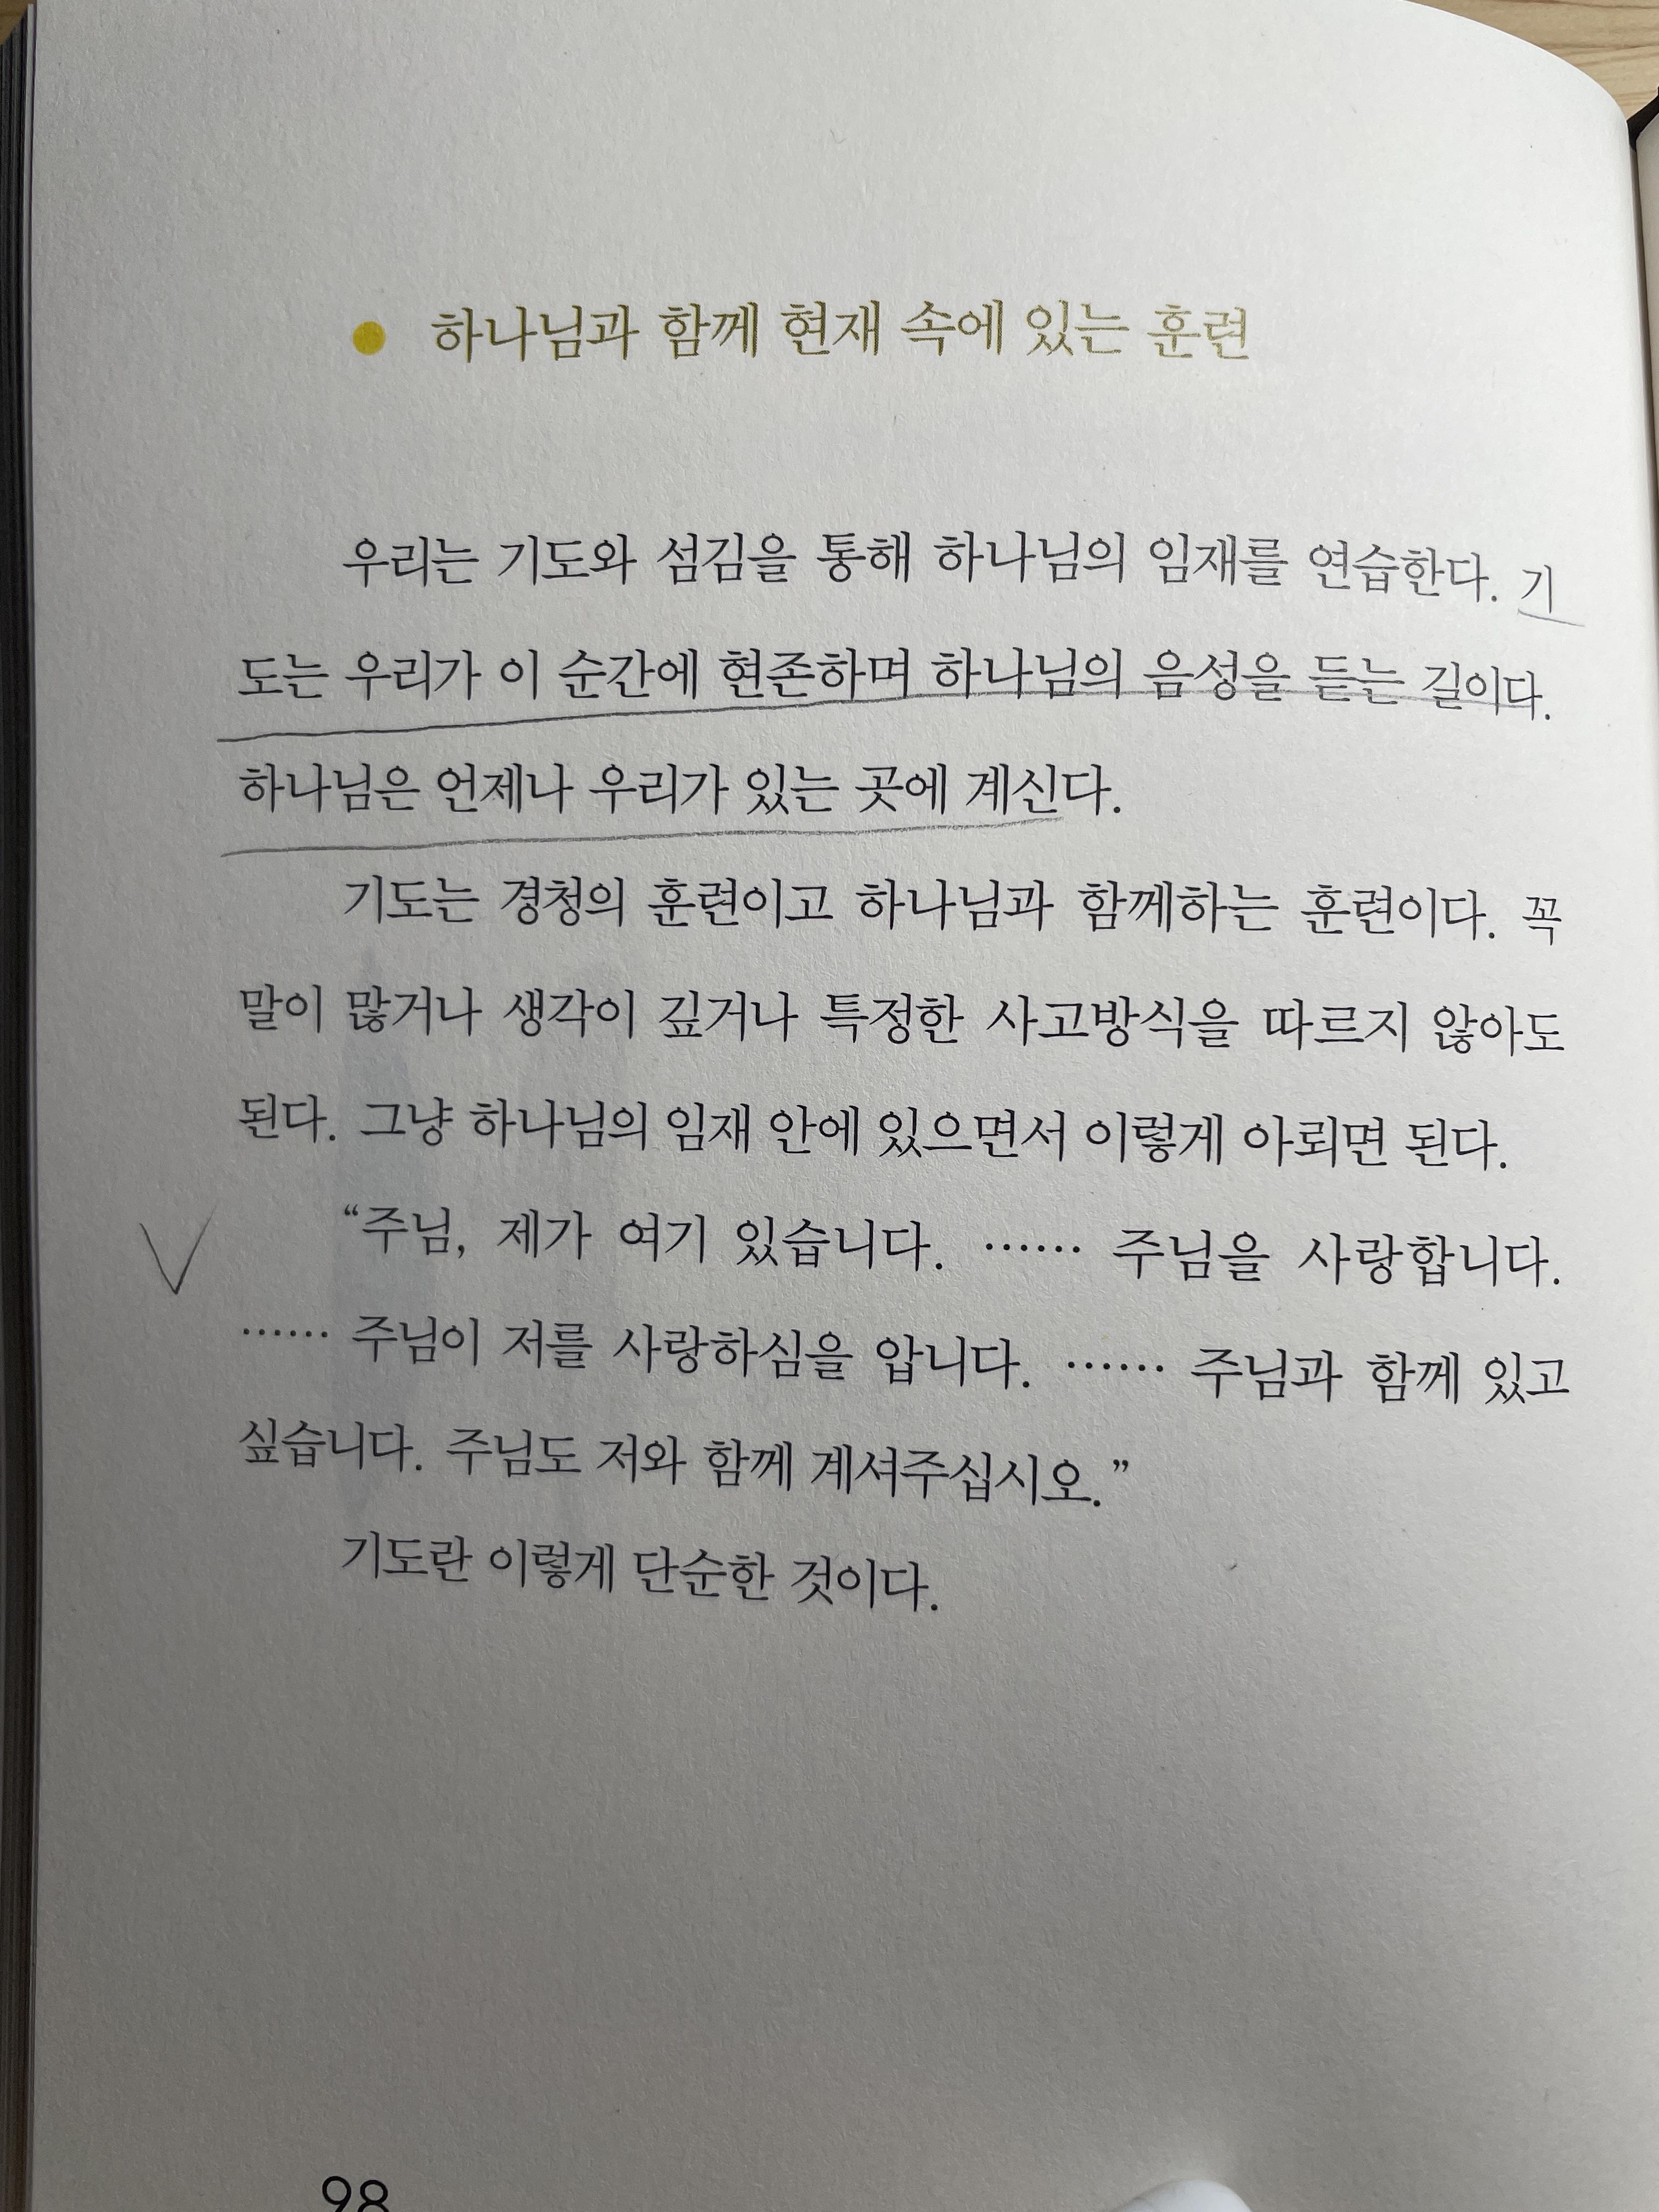 ● 하나님과 함께 현재 속에 있는 훈련
우리는 기도와 섬김을 통해 하나님의 임재를 연습한다. 기
도는 우리가 이 순간에 현존하며 하나님의 음성을 듣는 길이다.
하나님은 언제나 우리가 있는 곳에 계신다.
기도는 경청의 훈련이고 하나님과 함께하는 훈련이다. 꼭
말이 많거나 생각이 깊거나 특정한 사고방식을 따르지 않아도
된다. 그냥 하나님의 임재 안에 있으면서 이렇게 아뢰면 된다.
“주님, 제가 여기 있습니다. …… 주님을 사랑합니다.
…… 주님이 저를 사랑하심을 압니다. …… 주님과 함께 있고
싶습니다. 주님도 저와 함께 계셔주십시오.”
기도란 이렇게 단순한 것이다.
98